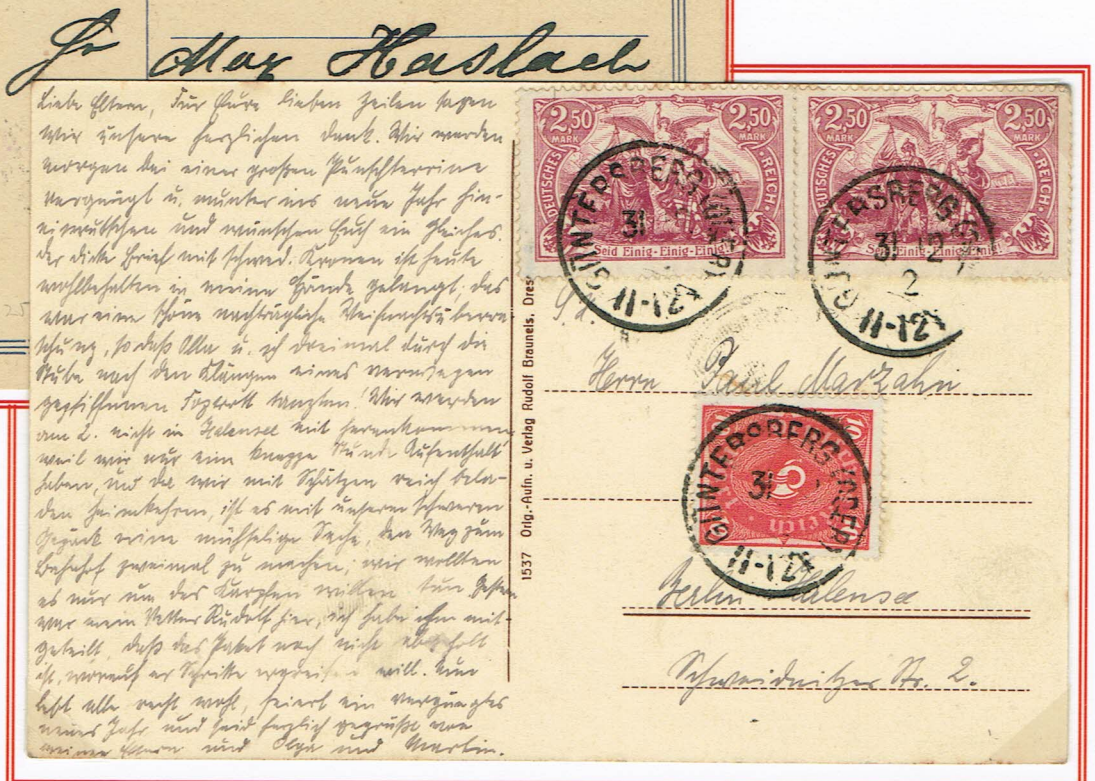 Hr Max Haslach
Liebe Eltern, Für Eure lieben Zeilen sagen
wir unsere herzlichen Dank. Wir werden
morgen bei einer großen Punschterrine
vergnügt u. munter ins neue Jahr hin-
einrutschen und wünschen Euch ein Gleiches.
Der dicke Brief mit schwed. Kronen ist heute
wohlbehalten in meine Hände gelangt, das
war eine schöne nachträgliche Weihnachtsüberra-
schung, so daß Olla u. ich dreimal durch die
Stube nach den Klängen eines
gepfiffenen Foxtrott tanzten! Wir werden
am 2. nicht in Halensee mit herankommen
weil wir nur eine knappe Stunde Aufenthalt
haben, und da wir mit Schätzen reich bela-
den heimkehren, ist es mit unserem schweren
Gepäck eine mühselige Sache, den Weg zum
Bahnhof zweimal zu machen, wir wollten
es nur um des Karpfen willen tun. Gestern
war mein Vetter Rudolf hier, ich habe ihm mit-
geteilt, daß das Paket noch nicht abgeholt
ist, worauf er Schritte ergreifen will. Nun
lebt alle recht wohl, feiert ein vergnügtes
neues Jahr und seid herzlich gegrüßt von
meinen Eltern und Olga und Martin.
1537 Orig.-Aufn. u. Verlag Rudolf Brauneis, Dres
2,50 MARK 2,50 MARK
DEUTSCHES REICH
Seid Einig-Einig-Einig!
2,50 MARK 2,50 MARK
DEUTSCHES REICH
Seid Einig-Einig-Einig!
GÜNTERSBERGE (HARZ)
31
11-12
GÜNTERSBERGE
31 12
2
11-12
S. H.
Herrn Paul Marzahn
10
Reich
GÜNTERSBERGE
31
11-12
Berlin Halensee
Schweidnitzer Str. 2.